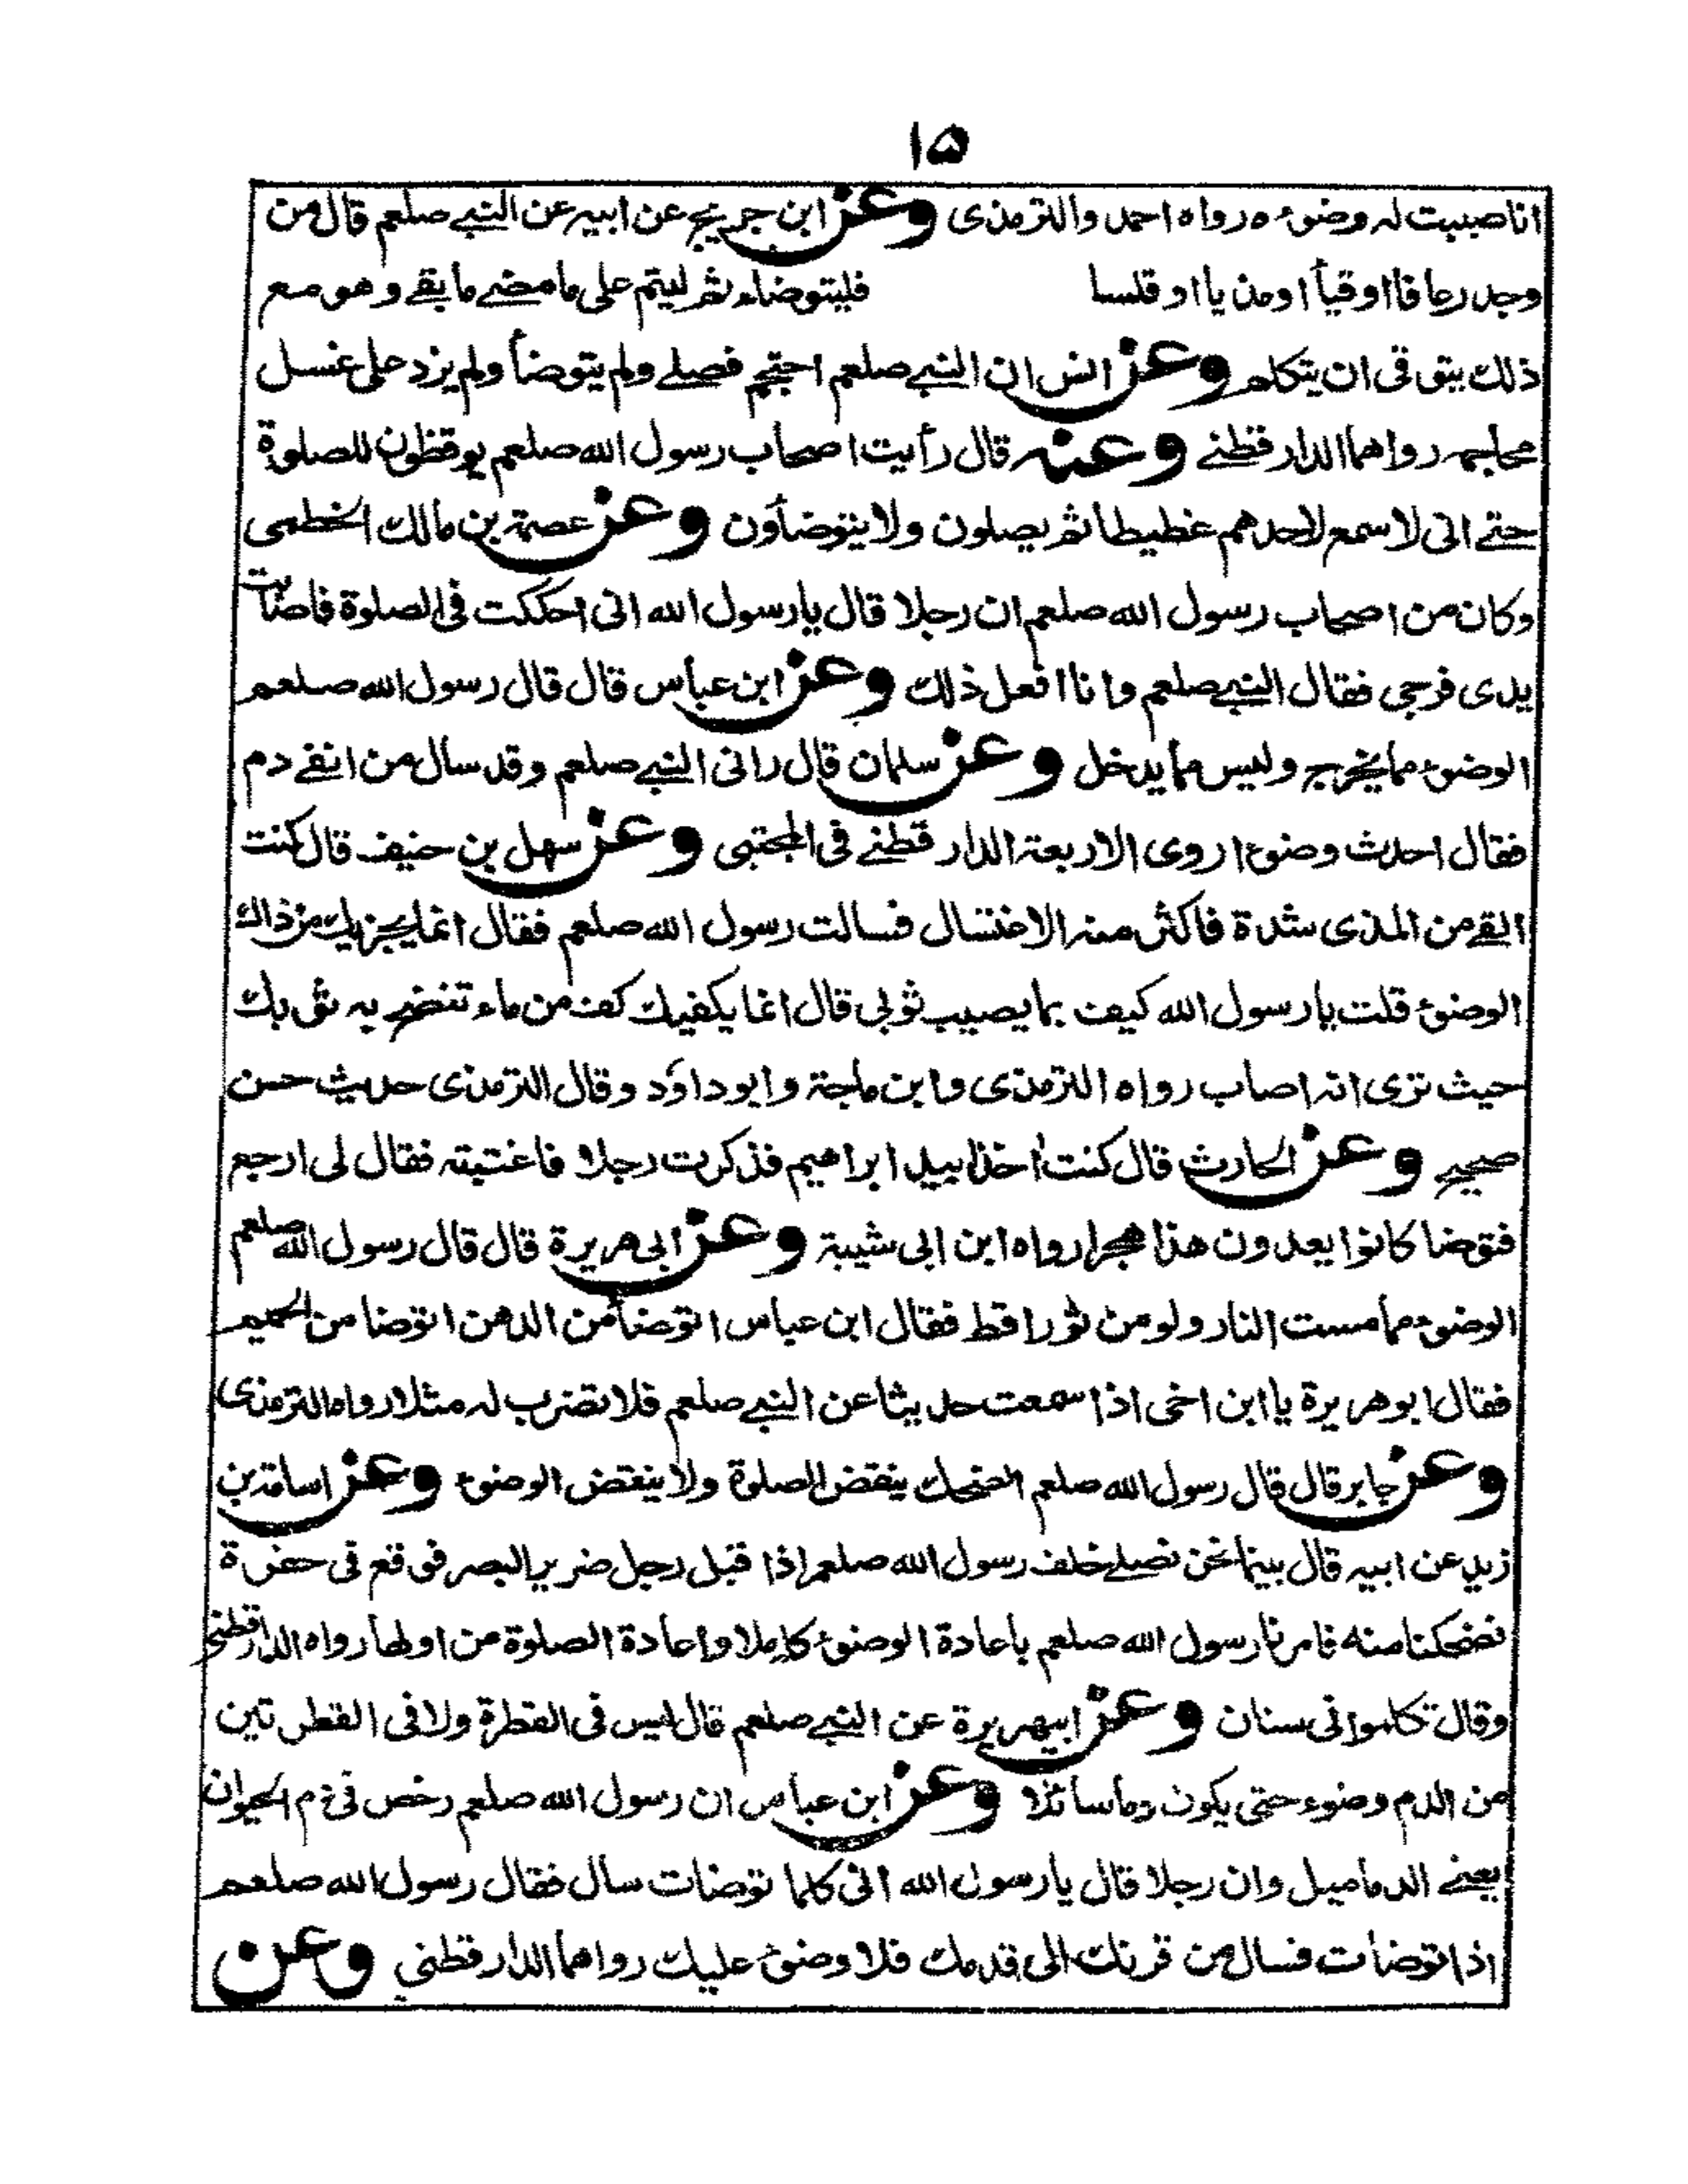 ۱۵
انا صببت له وضوءه رواه احمد والترمذى وعن ابن جريج عن ابيه عن النبے صلعم قال من
وجد رعافا اوقيأ اومذيا اوقلسا فليتوضاء ثم ليتم على مامضے مابقے وهو مع
ذلك يتوقى ان يتكلم وعن انس ان النبے صلعم احتجم فصلے ولم يتوضأ ولم يزد على غسل
محاجمه رواهما الدارقطنے وعنه قال رأيت اصحاب رسول الله صلعم يوقظون للصلوة
حتے انى لاسمع لاحدهم غطيطا ثم يصلون ولا يتوضأون وعن عصمة بن مالك الخطمى
وكان من اصحاب رسول الله صلعم ان رجلا قال يا رسول الله انى احككت فى الصلوة فاصابت
يدى فرجى فقال النبے صلعم وانا افعل ذلك وعن ابن عباس قال قال رسول الله صلعم
الوضوء مما يخرج وليس مما يدخل وعن سلمان قال رانى النبے صلعم وقد سأل من انفے دم
فقال احدث وضوءا روى الاربعة الدارقطنے فى المجتبى وعن سهل بن حنيف قال كنت
القے من المذى شدة فاكثر منه الاغتسال فسالت رسول الله صلعم فقال انما يجزيك من ذالك
الوضوء قلت يا رسول الله كيف بما يصيب ثوبى قال انما يكفيك كف من ماء تنضح به ثوبك
حيث ترى انه اصاب رواه الترمذى وابن ماجة وابو داود وقال الترمذى حديث حسن
صحيح وعن الحارث قال كنت اخذا بيد ابراهيم فذكرت رجلا فاغتبته فقال لى ارجع
فتوضا كانوا يعدون هذا هجرا رواه ابن ابى شيبة وعن ابى هريرة قال قال رسول الله صلعم
الوضوء مما مست النار ولو من ثورا قط فقال ابن عباس اتوضأ من الدهن اتوضا من الحميم
فقال ابو هريرة يا ابن اخى اذا سمعت حديثا عن النبے صلعم فلا تضرب له مثلا رواه الترمذى
وعن جابر قال قال رسول الله صلعم الضحك ينقض الصلوة ولا ينقض الوضوء وعن اسامة بن
زيد عن ابيه قال بينما نحن نصلے خلف رسول الله صلعم اذا قبل رجل ضرير البصر فوقع فى حفرة
فضحكنا منه فامرنا رسول الله صلعم باعادة الوضوء كاملا واعادة الصلوة من اولها رواه الدارقطنى
وقال تكلموا فى سنان وعن ابيهريرة عن النبے صلعم قال ليس فى القطرة ولا فى القطرتين
من الدم وضوء حتى يكون دما سائلا وعن ابن عباس ان رسول الله صلعم رخص فى دم الحيوان
يعنے الدماميل وان رجلا قال يا رسول الله انى كلما توضات سال فقال رسول الله صلعم
اذا توضأت فسال من قرنك الى قدمك فلا وضوء عليك رواهما الدارقطنى وعن